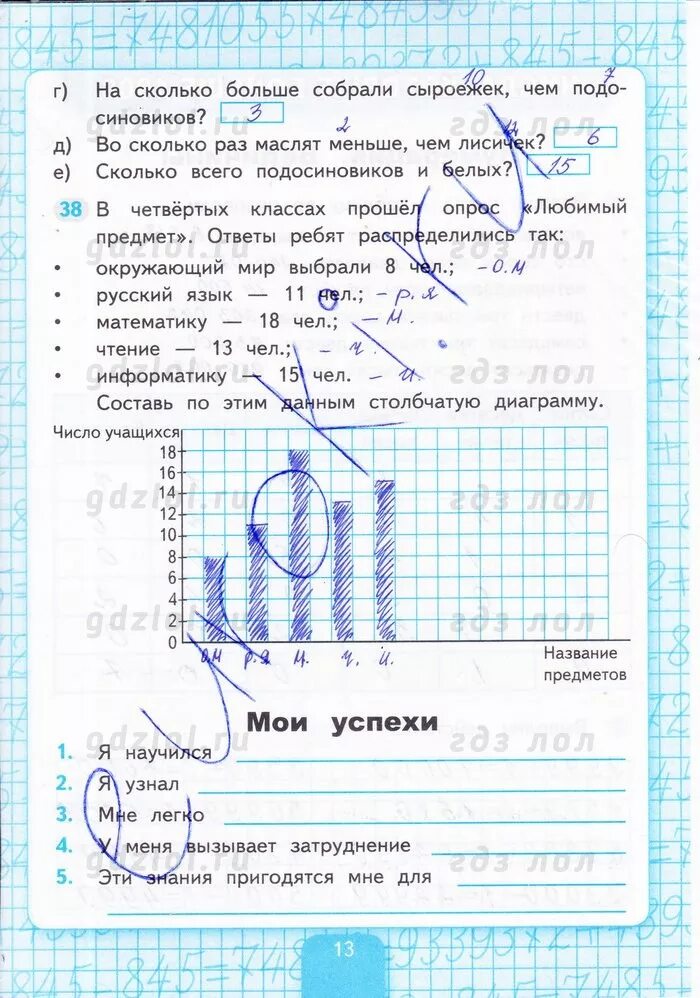 г) На сколько больше собрали сыроежек, чем подо-
10 7
синовиков? 3
д) Во сколько раз маслят меньше, чем лисичек? 6
2 12
е) Сколько всего подосиновиков и белых? 15
38 В четвёртых классах прошёл опрос «Любимый
предмет». Ответы ребят распределились так:
• окружающий мир выбрали 8 чел.; – о.м
• русский язык — 11 чел.; – р.я
• математику — 18 чел.; – м.
• чтение — 13 чел.; – ч.
• информатику — 15 чел. – и.
Составь по этим данным столбчатую диаграмму.
Число учащихся
18
16
14
12
10
8
6
4
2
0
о.м р.я м. ч. и.
Название
предметов
Мои успехи
1. Я научился
2. Я узнал
3. Мне легко
4. У меня вызывает затруднение
5. Эти знания пригодятся мне для
13
gdzlol.ru гдз лол